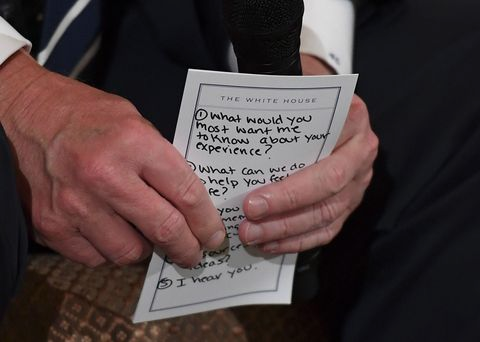 THE WHITE HOUSE
① What would you
most want me
to know about your
experience?
What can we do
help you feel
fe?
you
mem
ource
ideas?
⑤ I hear you.